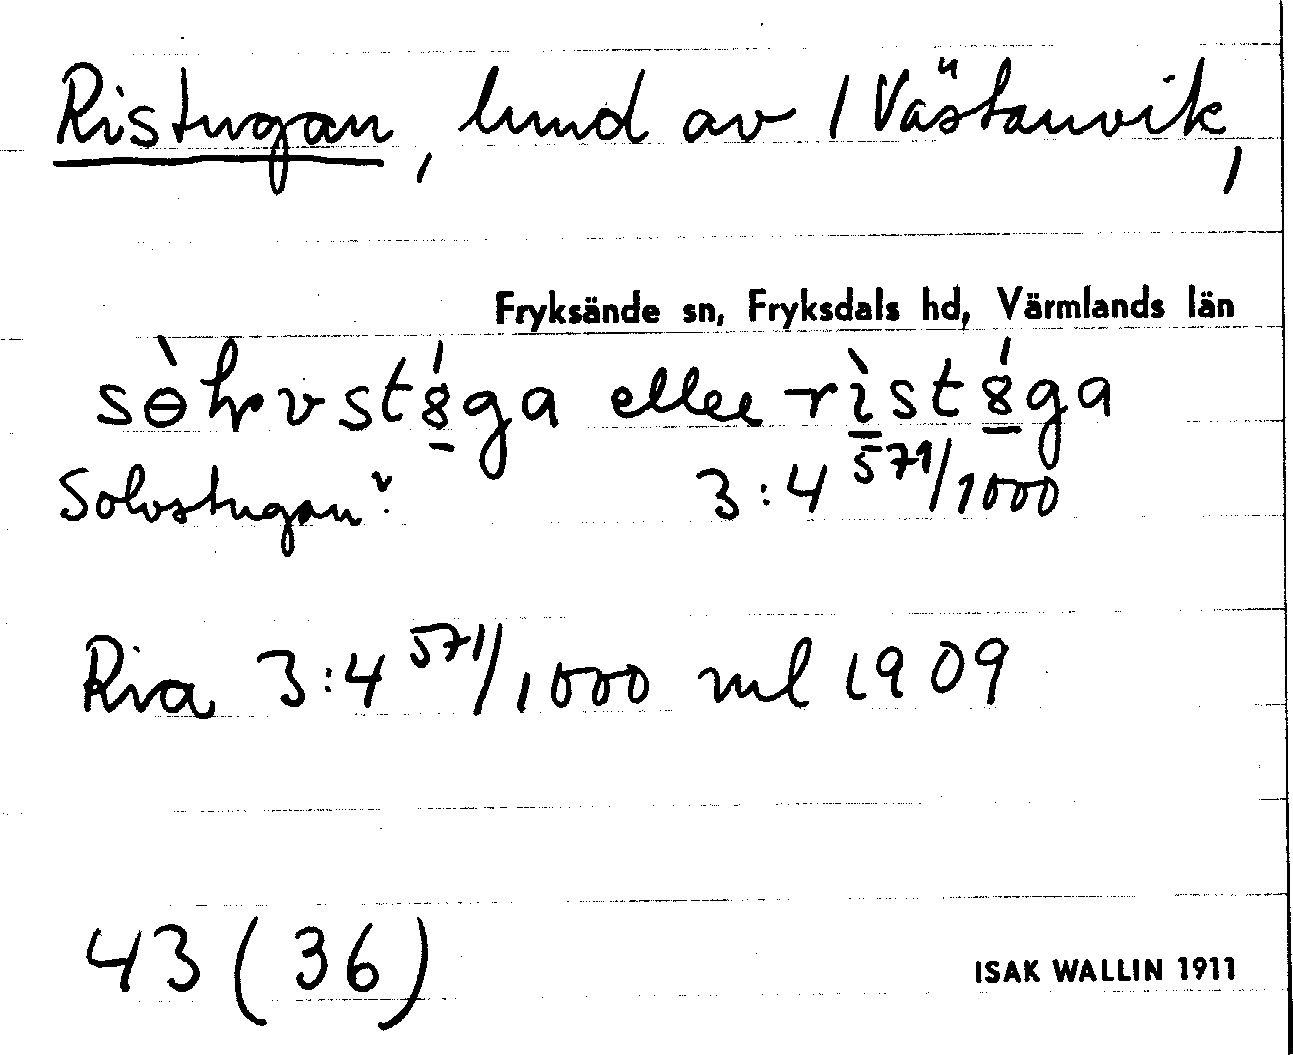 Ristugan, lund av 1 Västanvik,
Fryksände sn, Fryksdals hd, Värmlands län
eller
Solvstugan? 3:4 571/1000
Ria 3:4 571/1000 ml 1909
43 (36)
ISAK WALLIN 1911